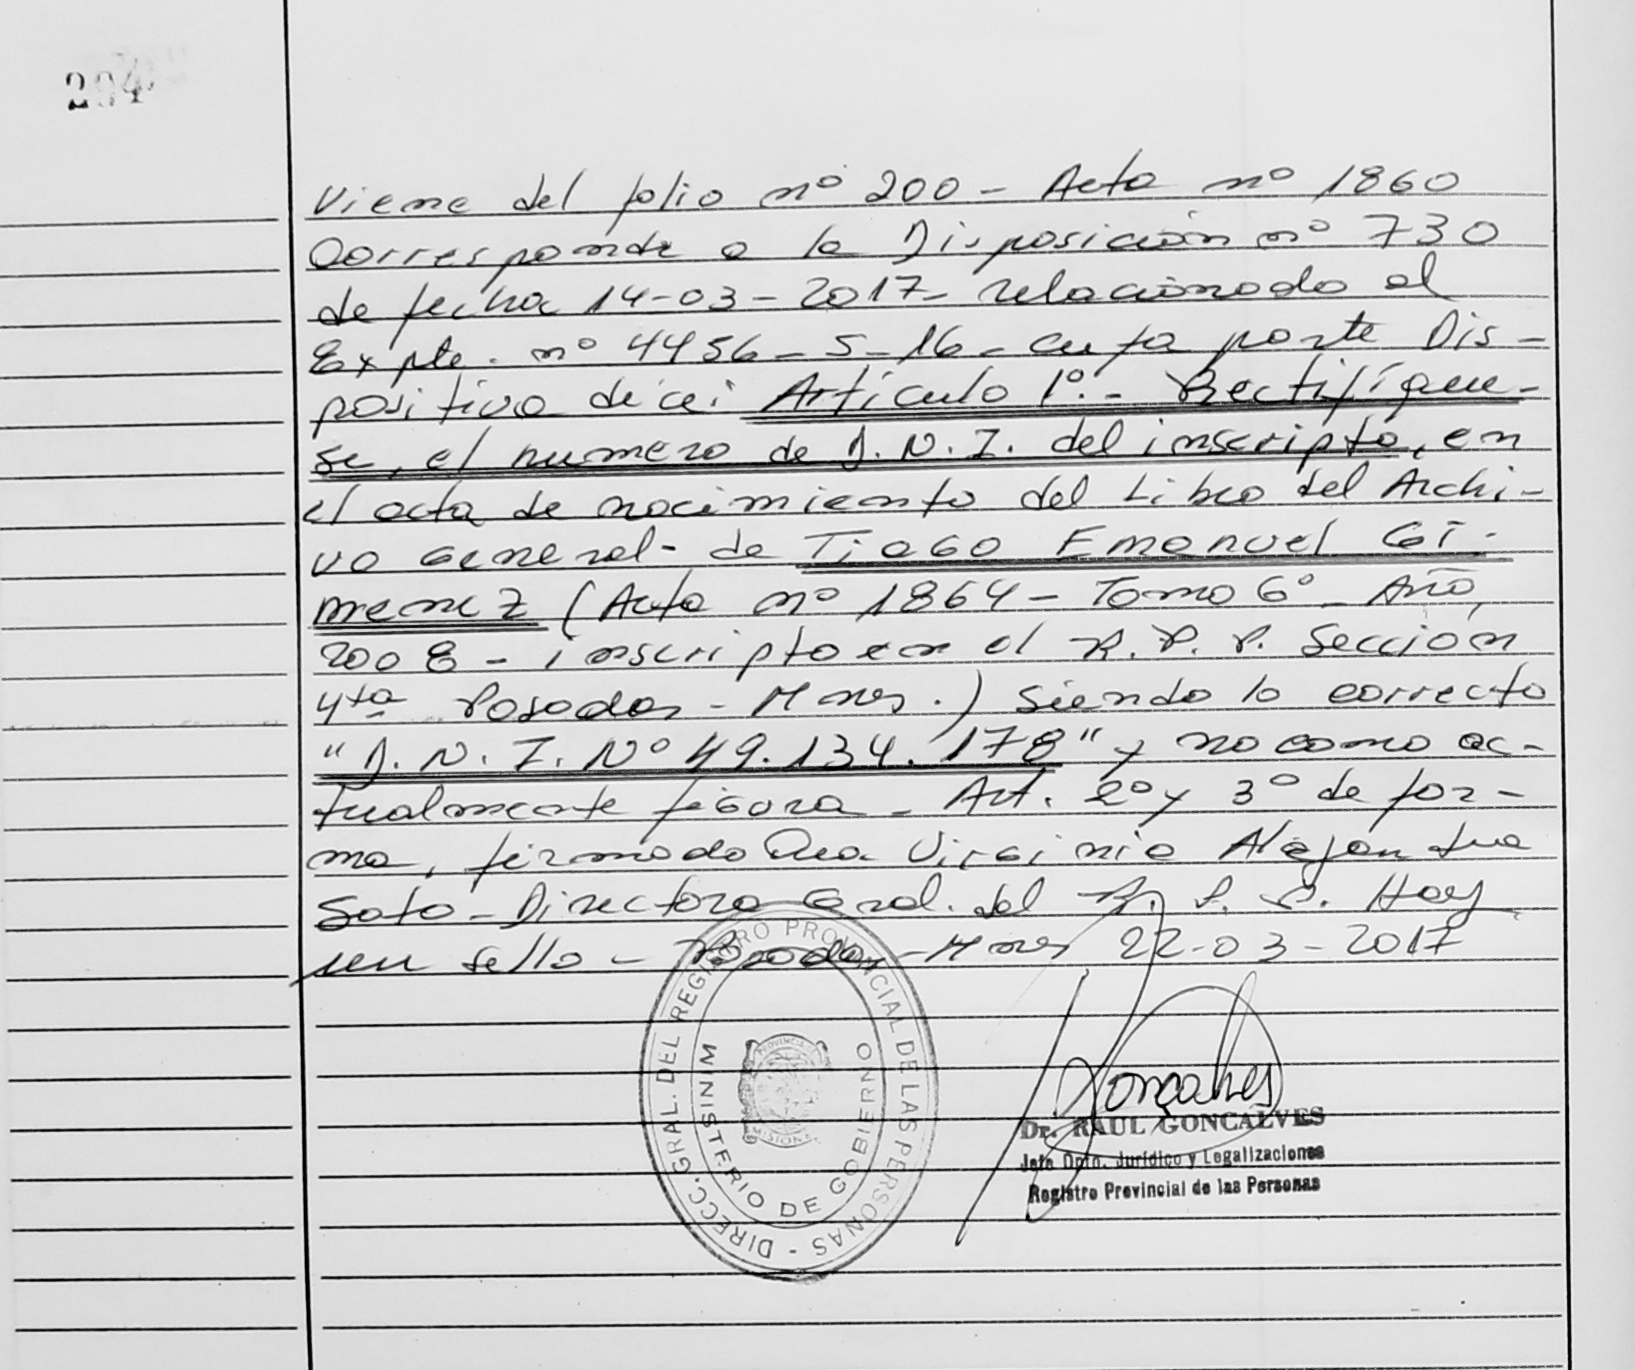 204
Viene del folio nº 200 - Acta nº 1860
Corresponde a la Disposición nº 730
de fecha 14-03-2017- relacionado al
Expte. nº 4456-S-16- cuya parte Dis-
positiva dice: Artículo 1º.- Rectifíque-
se, el numero de D.N.I. del inscripto, en
el acta de nacimiento del Libro del Archi-
vo General- de Tiago Emanuel Gi-
menez (Acta nº 1864- Tomo 6º- Año
2008 - inscripto en el R.P.P. Sección
4ta Posadas - Mnes.) Siendo lo correcto
"D.N.I. Nº 49.134.178" y no como ac-
tualmente figura - Art. 2º y 3º de for-
ma, firmado Dra. Virginia Alejandra
Soto - Directora Gral. del R.P.P. Hay
un sello - Posadas - Mnes 22-03-2017
DIRECC. GRAL. DEL REGISTRO PROVINCIAL DE LAS PERSONAS -
MINISTERIO DE GOBIERNO
PROVINCIA DE
MISIONES
Goncalves
Dr. RAUL GONCALVES
Jefe Dpto. Jurídico y Legalizaciones
Registro Provincial de las Personas